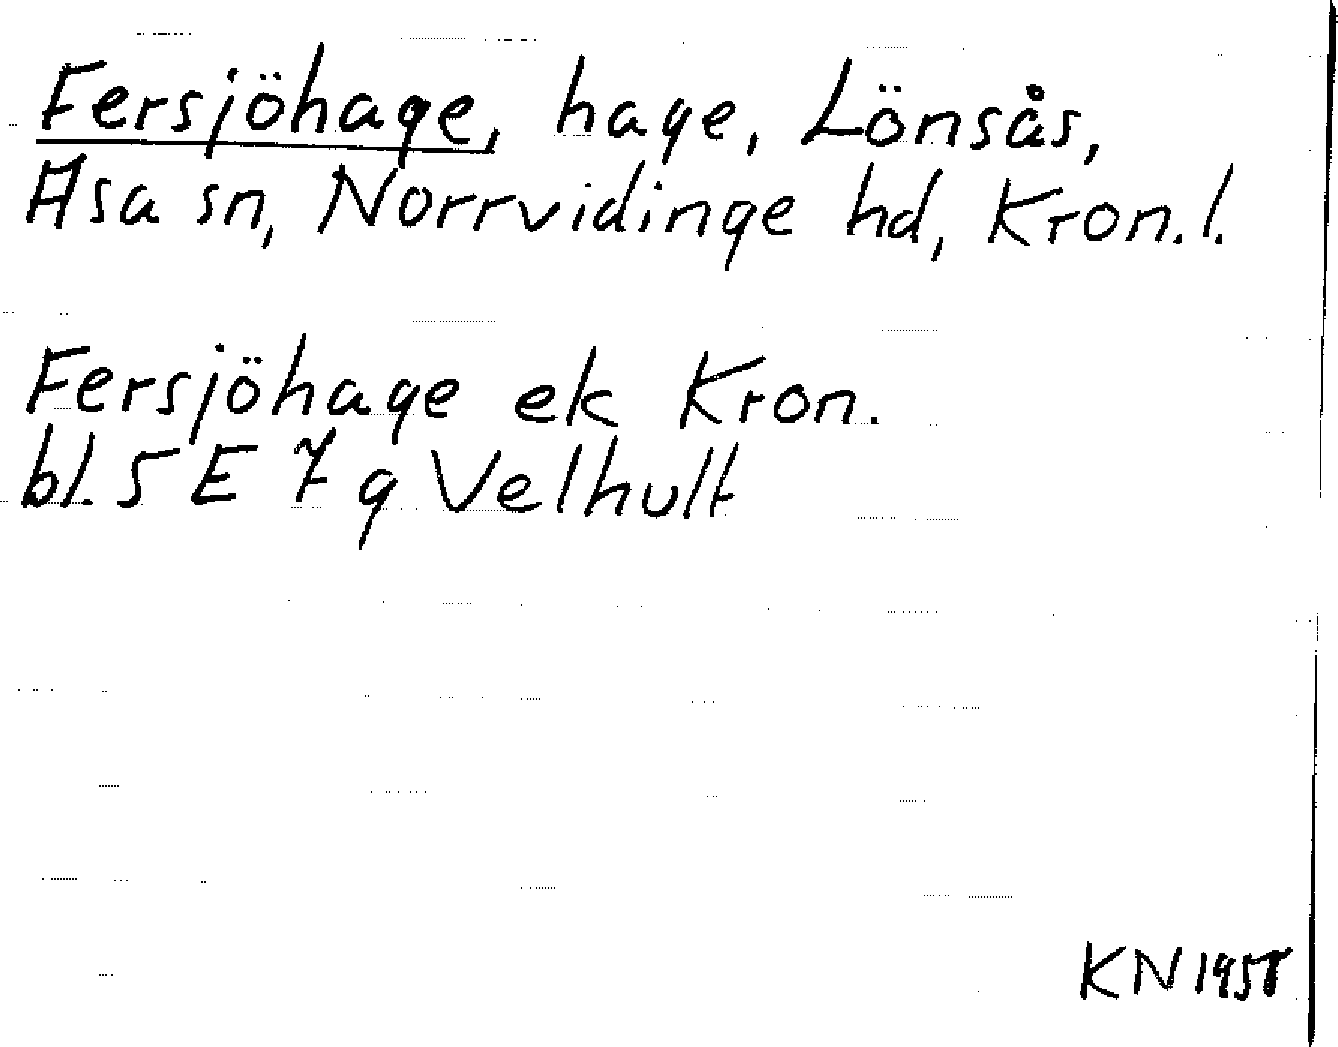 Fersjöhage, hage, Lönsås,
Asa sn, Norrvidinge hd, Kron. l.
Fersjöhage ek Kron.
bl. 5 E 7 g Velhult
KN